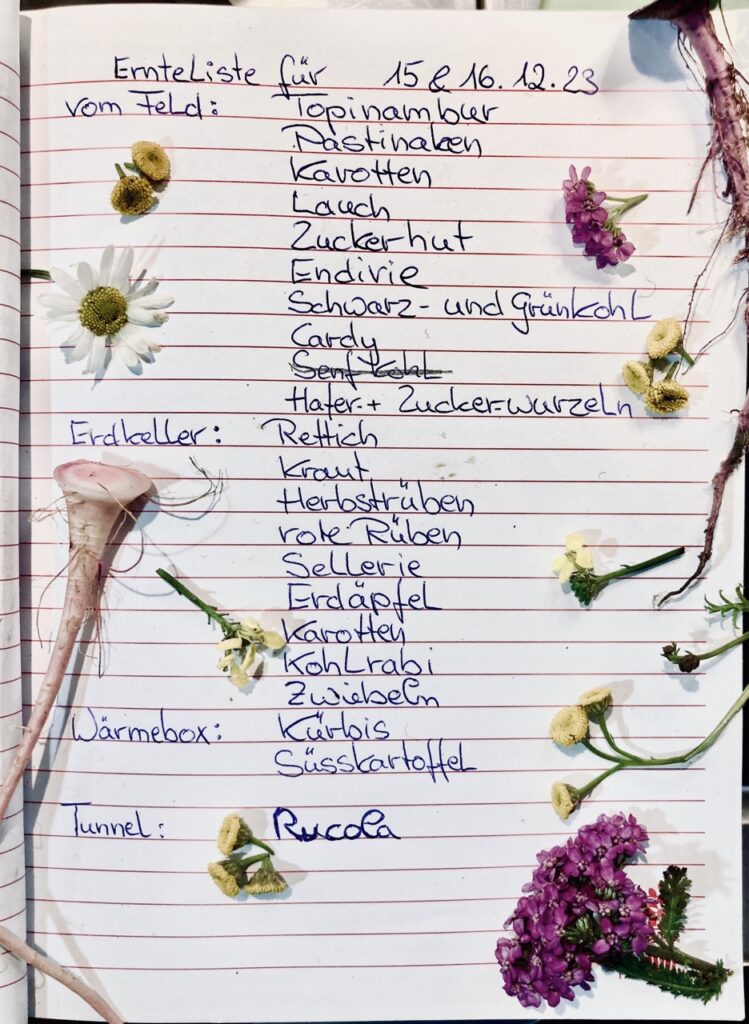 ErnteListe für 15 & 16.12.23
vom Feld: Topinambur
Pastinaken
Karotten
Lauch
Zuckerhut
Endivie
Schwarz- und Grünkohl
Cardy
Senfkohl
Hafer- + Zucker-wurzeln
Erdkeller: Rettich
Kraut
Herbstrüben
rote Rüben
Sellerie
Erdäpfel
Karotten
Kohlrabi
Zwiebeln
Wärmebox: Kürbis
Süsskartoffel
Tunnel: Rucola